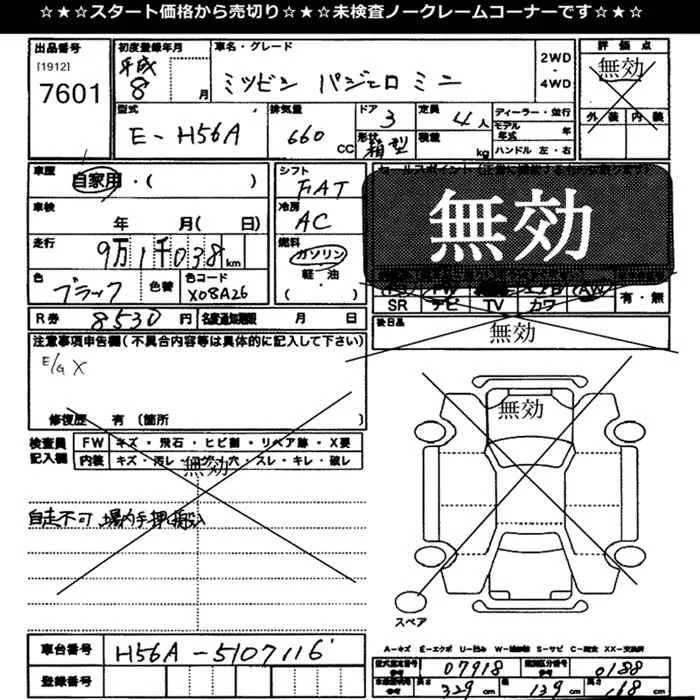 ☆★☆スタート価格から売切り☆★☆未検査ノークレームコーナーです☆★☆
出品番号 初度登録年月 車名・グレード 2WD・4WD 評価点
[1912] 平成 8 月 ミツビシ パジェロ ミニ 無効
7601
型式 排気量 ドア 定員 ディーラー・並行 外装 内装
E-H56A 660 CC 3 4人 モデル年式 年
形状 箱型 積載 kg ハンドル 左・右
車歴 自家用・( ) シフト FAT
車検 年 月( 日) 冷房 AC 無効
走行 9万1千038km 燃料 ガソリン
色 ブラック 色替 色コード X08A26 軽・油 ( )
SR テレビ TV カワ AW 有・無
R券 8530円 名変通知期限 月 日 後日品 無効
注意事項申告欄(不具合内容等は具体的に記入して下さい)
E/G X
無効
修復歴 有(箇所 )
検査員記入欄 FW キズ・飛石・ヒビ割・リペア跡・X要
内装 キズ・汚レ・コゲ・穴・スレ・キレ・破レ
無効
自走不可 場内手押し搬入
スペア
A-キズ E-エクボ U-凹み W-補修跡 S-サビ C-腐食 XX-交換済
車台番号 H56A-5107116 型式指定番号 07918 類別区分番号 0188
登録番号 長さ 329cm 幅 139cm 高さ 168cm